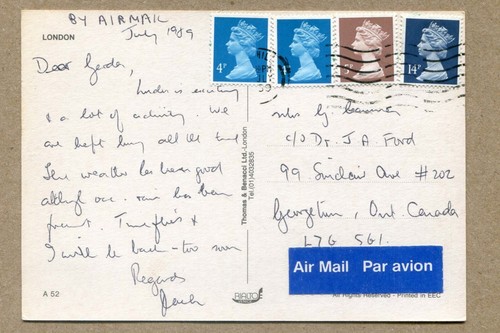 BY AIRMAIL
LONDON
July 1989
4P
14P
Dear Gerda,
London is exciting
& a lot of activity. We
are kept busy all the time
The weather has been good
although one rain has been
Time flies &
I will be back - too soon
Regards
Mrs G.
c/o Dr. J. A. Ford
99 Sinclair Ave #202
Georgetown, Ont. Canada
L7G 5G1.
Air Mail Par avion
Thomas & Benacci Ltd.-London
Tel.(01)4032835
A 52
All Rights Reserved - Printed in EEC